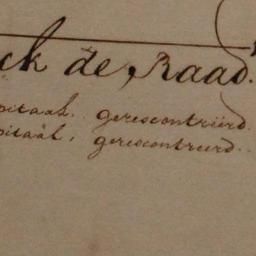 ck de Raad.
pitaal. gerescontriërd.
pitaal, gerescontreerd..